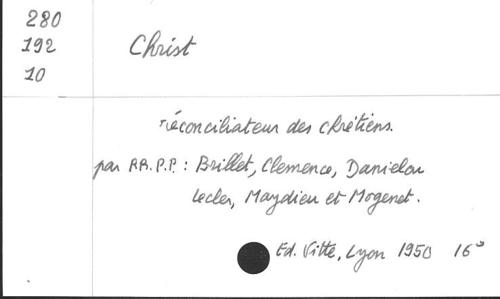 280
192
10
Christ
réconciliateur des chrétiens.
par RR.P.P. : Brillet, Clemence, Danielou
Lecler, Maydieu et Mogenet.
Ed. Vitte, Lyon 1950 16°